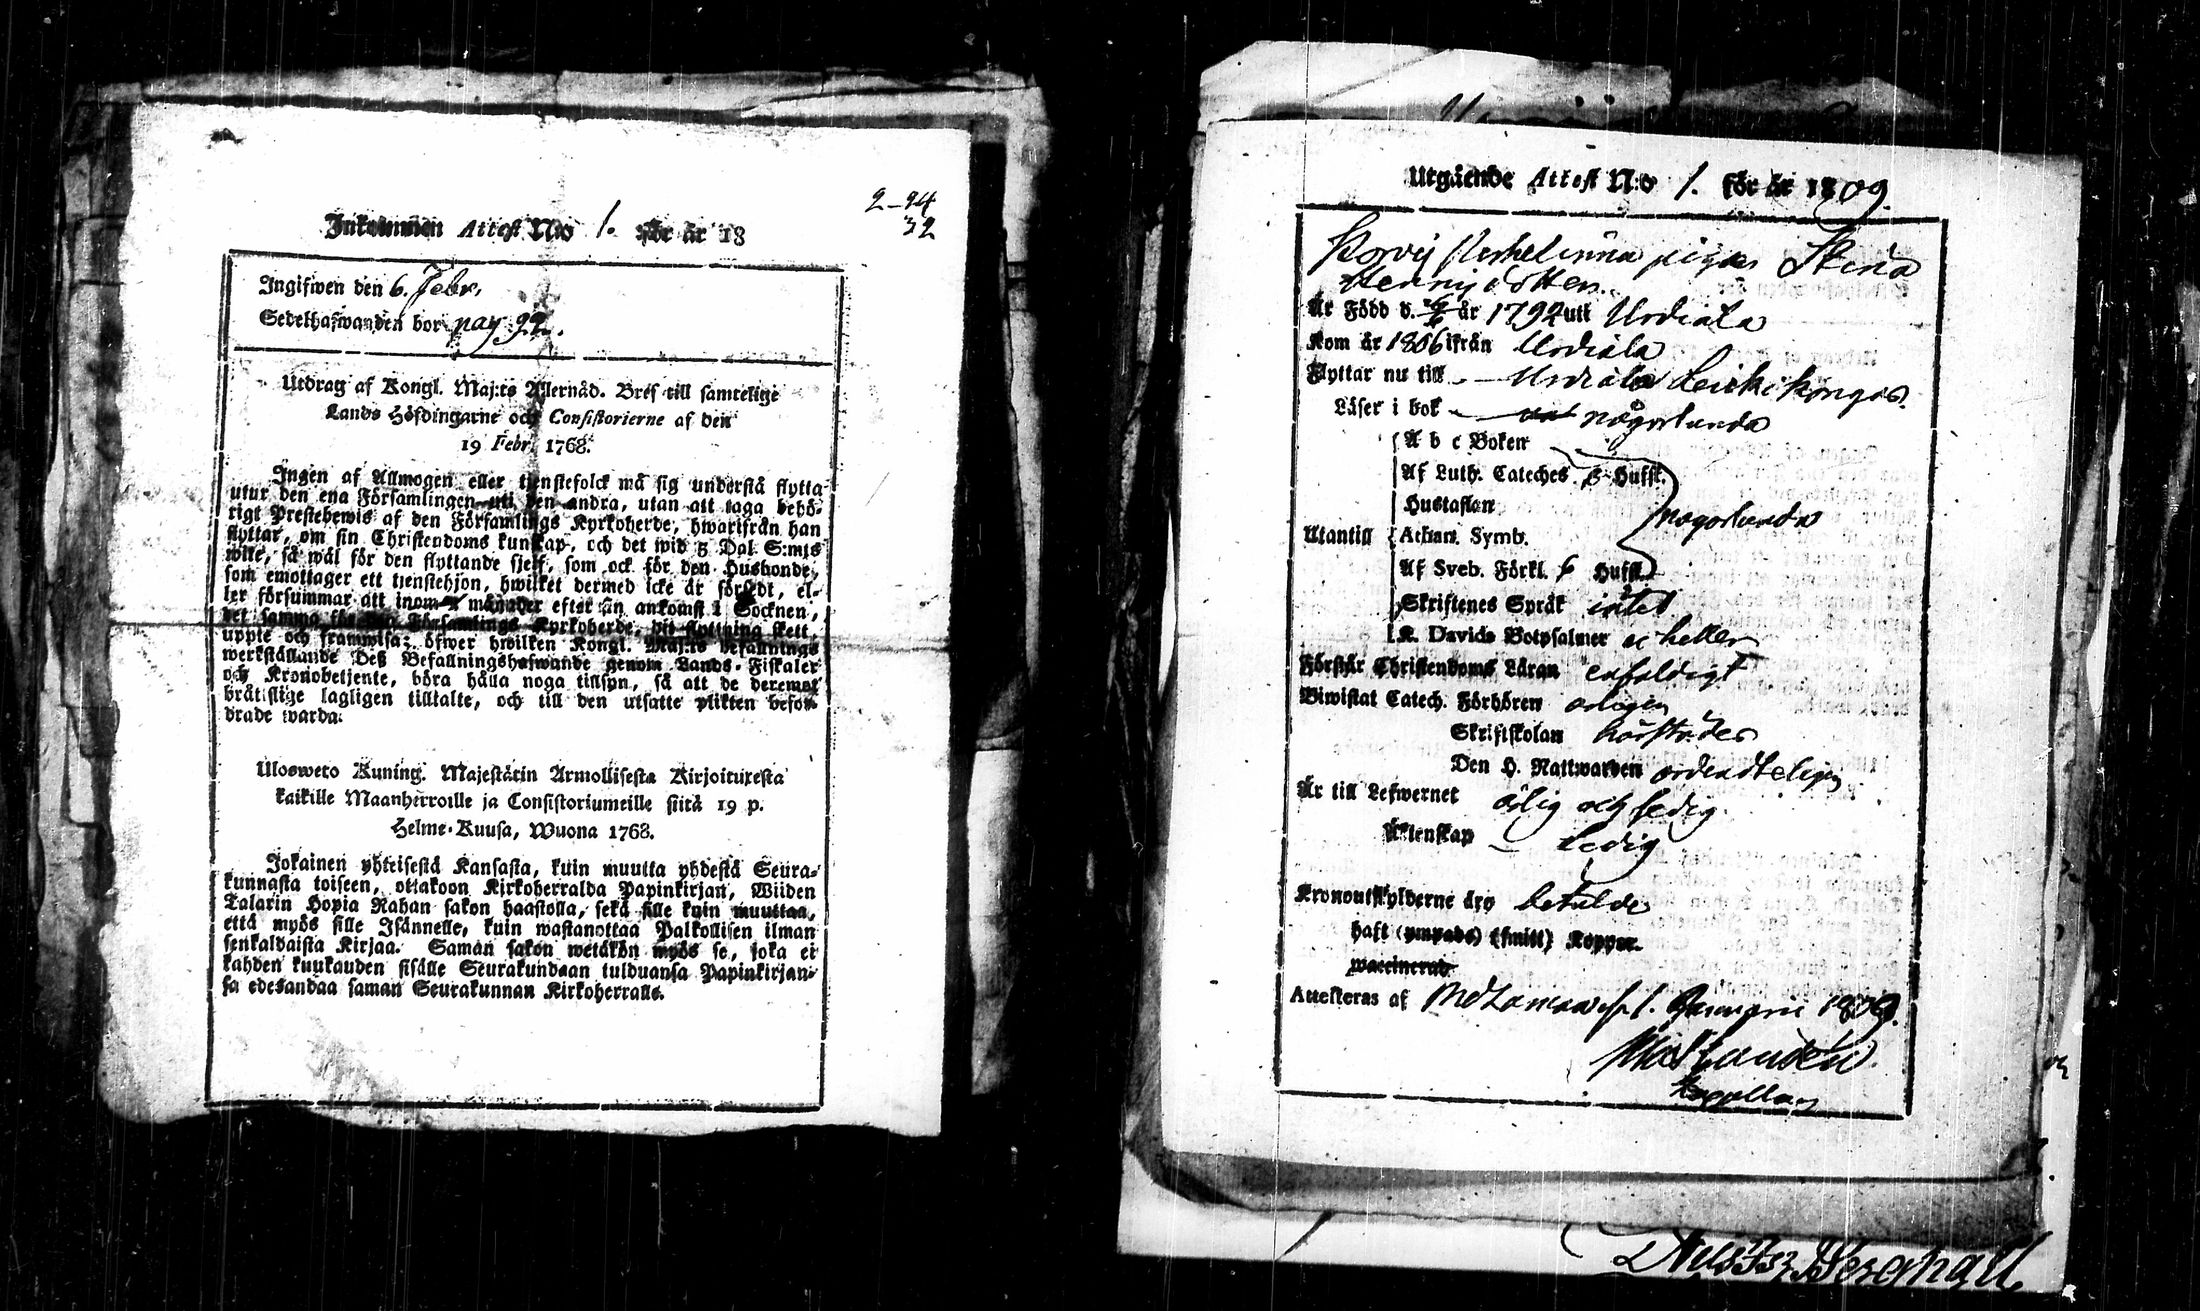 2-24
32
Inkommen Attest N:o 1. för år 18
Ingifwen den 6. Febr.
Sedelhafwanden bor pag 92.
Utdrag af Kongl. Maj:ts Allernåd. Bref till samtelige
Lands Höfdingarne och Consistorierne af den
19 Febr. 1768.
Ingen af Allmogen eller tjenstefolck må sig understå flytta
utur den ena Församlingen uti den andra, utan att taga behö-
rigt Prestebewis af den Församlings Kyrkoherde, hwarifrån han
flyttar, om sin Christendoms kunskap, och det wid 5 Dal. S:mts
wite, så wäl för den flyttande sjelf, som ock för den Husbonde,
som emottager ett tienstehjon, hwilket dermed icke är försedt, el-
ler försummar att inom månader efter sin ankomst i Socknen,
det samma för Församlings Kyrkoherde, dit flyttning skett,
uppte och framwisa; öfwer hwilken Kongl. Maj:ts befallnings
werkställande Deß Befallningshafwande genom Lands-Fiskaler
och Kronobetjente, böra hålla noga tillsyn, så att de deremot
brättslige lagligen tilltalte, och till den utsatte plikten befor-
drade warda.
Ulosweto Kuning. Majestätin Armollisesta Kirjoituxesta
kaikille Maanherroille ja Consistoriumeille siitä 19 p.
Helme-Kuusa, Wuona 1768.
Jokainen yhteisestä Kansasta, kuin muutta yhdestä Seura-
kunnasta toiseen, ottakoon Kirkoherralda Papinkirjan, Wiiden
Talarin Hopia Rahan sakon haastolla, sekä sille kuin muuttaa,
että myös sille Isännelle, kuin wastanottaa Palkollisen ilman
senkaldaista Kirjaa. Saman sakon wetäkön myös se, joka ei
kahden kuukauden sisälle Seurakundaan tulduansa Papinkirjan-
sa edesandaa saman Seurakunnan Kirkoherralle.
Utgående Attest N:o 1. för år 1809.
pigan Stina
Henricsdotter
Är Född d. år 1792 uti Urdiala
Kom år 1806 ifrån Urdiala
Flyttar nu till Urdiala
Läser i bok någorlunda
A b c Boken
Af Luth. Cateches. Hufst.
Hustaflan
någorlunda
Utantill Athan. Symb.
Af Sveb. Förkl. Hufst.
Skriftenes Språk intet
K. Davids Botpsalmer ei heller
Förstår Christendoms Läran enfaldigt
Biwistat Catech. Förhören årligen
Skriftskolan
Den H. Nattwarden ordenteligen
Är till Lefwernet ärlig och sedig.
Äktenskap ledig
Kronoutskylderne äro betalde
haft (ympade) (smitt) Koppor.
waccinerad
Attesteras af d. 1. Januarii 1809.
Kapellan
Berghäll